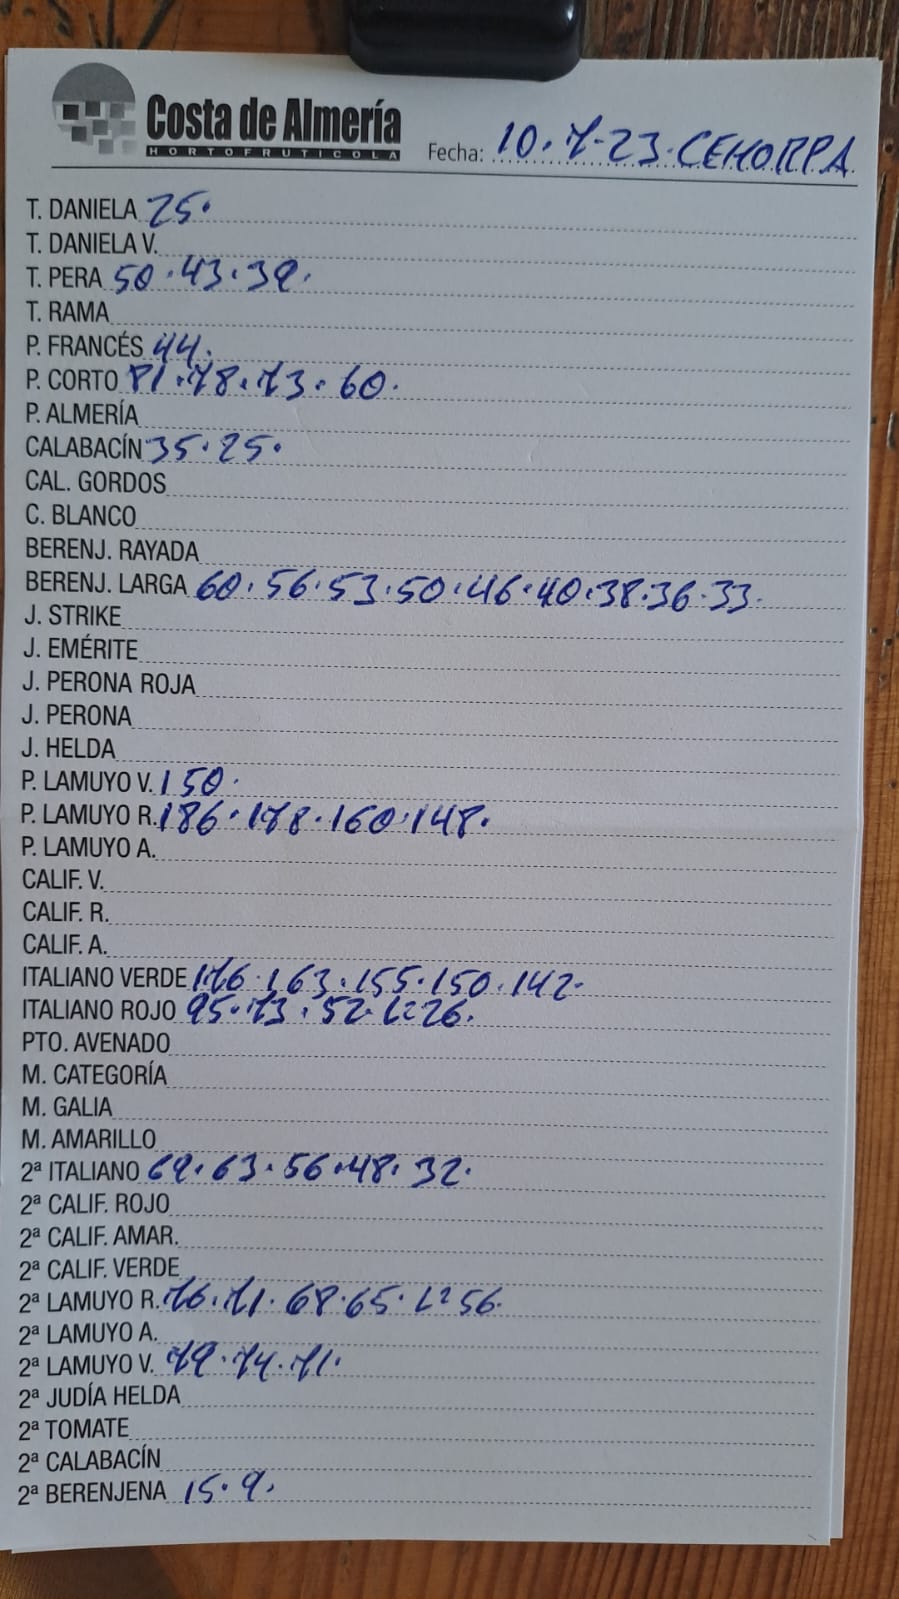 Costa de Almería
HORTOFRUTICOLA
Fecha: 10.7.23.CEHORPA
T. DANIELA 25.
T. DANIELA V.
T. PERA 50.43.39.
T. RAMA
P. FRANCÉS 44.
P. CORTO 81.78.73.60.
P. ALMERÍA
CALABACÍN 35.25.
CAL. GORDOS
C. BLANCO
BERENJ. RAYADA
BERENJ. LARGA 60.56.53.50.46.40.38.36.33.
J. STRIKE
J. EMÉRITE
J. PERONA ROJA
J. PERONA
J. HELDA
P. LAMUYO V. 150.
P. LAMUYO R. 186.178.160.148.
P. LAMUYO A.
CALIF. V.
CALIF. R.
CALIF. A.
ITALIANO VERDE 176.163.155.150.142.
ITALIANO ROJO 95.73.52. 26.
PTO. AVENADO
M. CATEGORÍA
M. GALIA
M. AMARILLO
2ª ITALIANO 69.63.56.48.32.
2ª CALIF. ROJO
2ª CALIF. AMAR.
2ª CALIF. VERDE
2ª LAMUYO R. 76.71.68.65. 56.
2ª LAMUYO A.
2ª LAMUYO V. 79.74.71.
2ª JUDÍA HELDA
2ª TOMATE
2ª CALABACÍN
2ª BERENJENA 15.9.